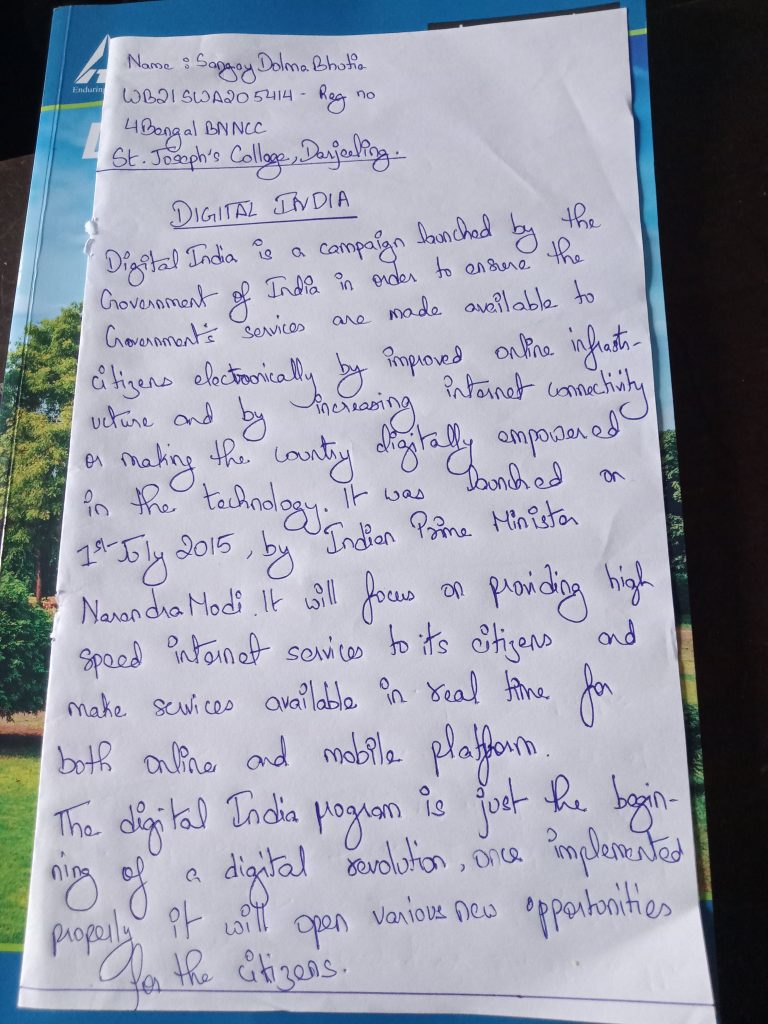 Enduring
Name : Sangay Dolma Bhutia
WB21SWA205414 - Reg no
4 Bengal BN NCC
St. Joseph's College, Darjeeling.
DIGITAL INDIA
Digital India is a campaign launched by the
Government of India in order to ensure the
Government's services are made available to
citizens electronically by improved online infrastr-
ucture and by increasing internet connectivity
or making the country digitally empowered
in the technology. It was launched on
1st July 2015, by Indian Prime Minister
Narendra Modi. It will focus on providing high
speed internet services to its citizens and
make services available in real time for
both online and mobile platform.
The digital India program is just the begin-
ning of a digital revolution, once implemented
properly it will open various new opportunities
for the citizens.